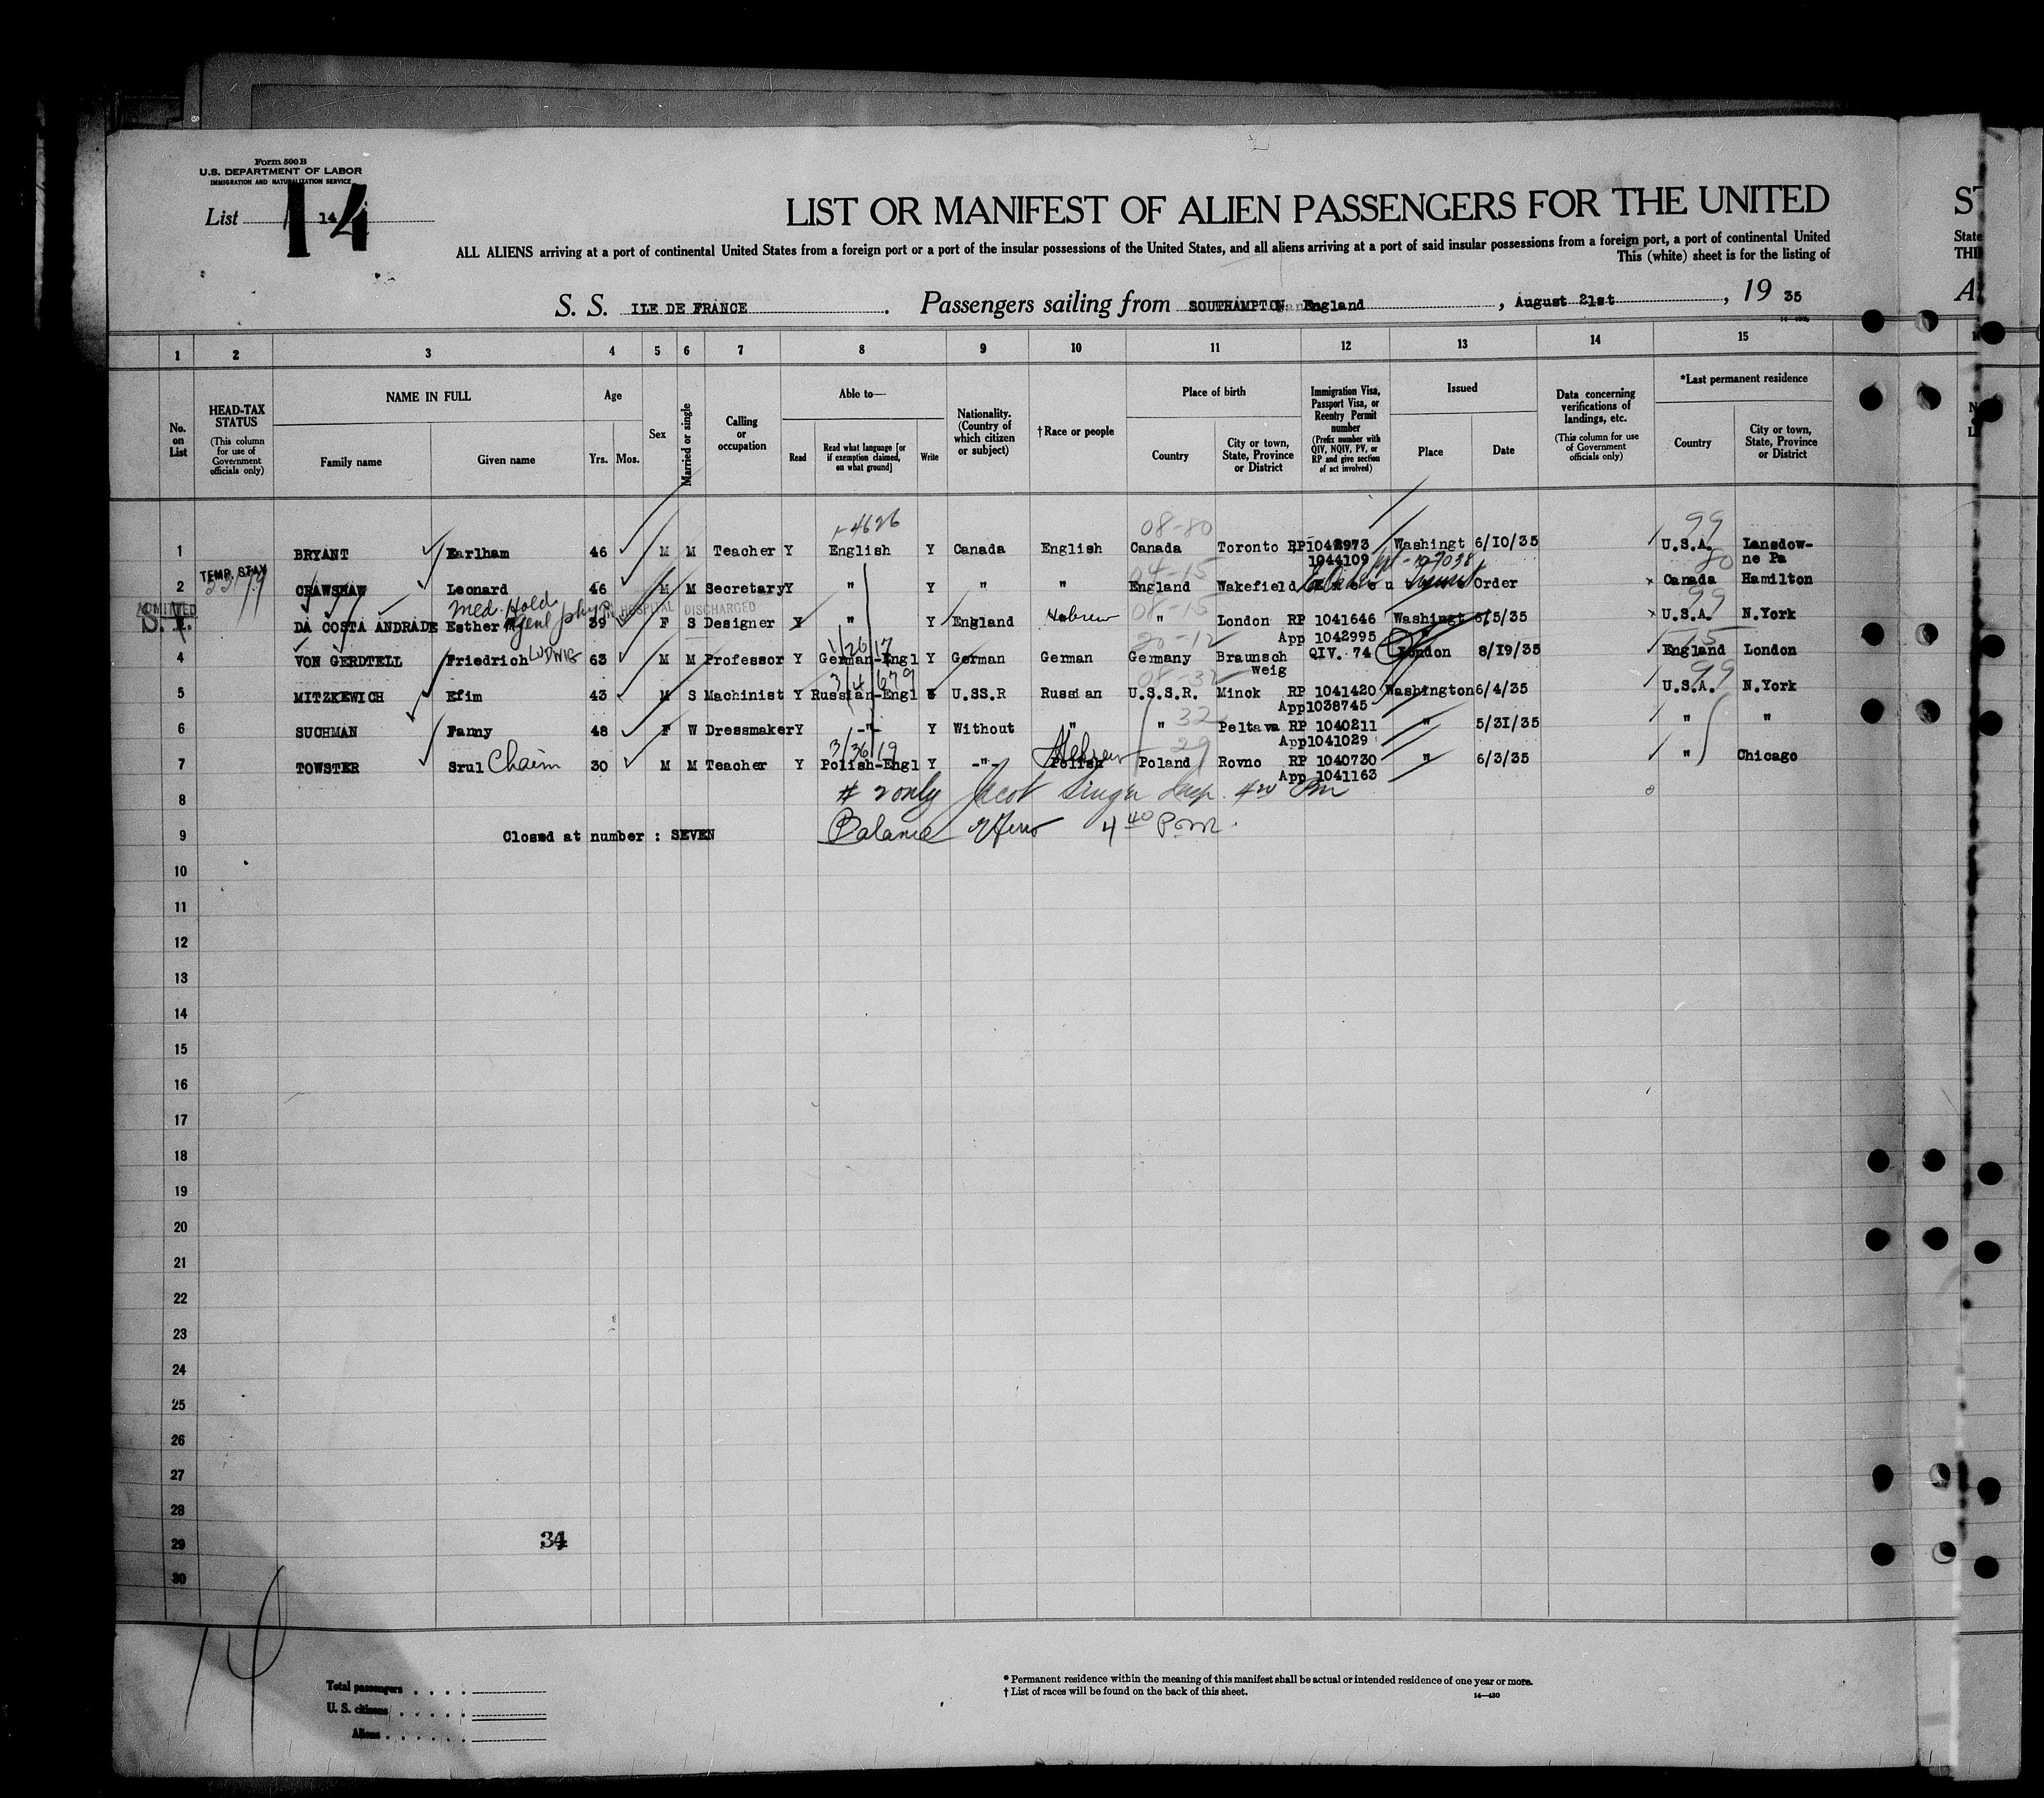 Form 500 B
U.S. DEPARTMENT OF LABOR
IMMIGRATION AND NATURALIZATION SERVICE
List 14
14
LIST OR MANIFEST OF ALIEN PASSENGERS FOR THE UNITED
ALL ALIENS arriving at a port of continental United States from a foreign port or a port of the insular possessions of the United States, and all aliens arriving at a port of said insular possessions from a foreign port, a port of continental United
This (white) sheet is for the listing of
S. S. ILE DE FRANCE. Passengers sailing from SOUTHAMPTON England, August 21st, 19 35
1 2 3 4 5 6 7 8 9 10 11 12 13 14 15
No. on List
HEAD-TAX STATUS (This column for use of Government officials only)
NAME IN FULL Family name Given name
Age Yrs. Mos.
Sex
Married or single
Calling or occupation
Able to— Read Read what language [or if exemption claimed, on what ground] Write
Nationality. (Country of which citizen or subject)
†Race or people
Place of birth Country City or town, State, Province or District
Immigration Visa, Passport Visa, or Reentry Permit number (Prefix number with QIV, NQIV, PV, or RP and give section of act involved)
Issued Place Date
Data concerning verifications of landings, etc. (This column for use of Government officials only)
*Last permanent residence Country City or town, State, Province or District
4626 08-80 99
1 BRYANT Earlham 46 M M Teacher Y English Y Canada English Canada Toronto RP1042973 Washingt 6/10/35 U.S.A. Lansdow-
1044109 ne Pa
TEMP. STAY 04-15 80
2 CRAWSHAW Leonard 46 M M Secretary Y " Y " " England Wakefield Order Canada Hamilton
ADMITTED Med. Hold HOSPITAL DISCHARGED 08-15 99
S. I. DA COSTA ANDRADE Esther 39 F S Designer Y " Y England Hebrew " London RP 1041646 Washingt 6/5/35 U.S.A. N.York
1/26/17 20-12 App 1042995 " 15
4 VON GERDTELL Friedrich LUDWIG 63 M M Professor Y German-Engl Y German German Germany Braunsch QIV. 74 London 8/19/35 England London
3/4/679 08-32 weig 99
5 MITZKEWICH Efim 43 M S Machinist Y Russian-Engl Y U.SS.R Russian U.S.S.R. Minck RP 1041420 Washington 6/4/35 U.S.A. N.York
32 App1038745
6 SUCHMAN Fanny 48 F W Dressmaker Y -"- Y Without " " Peltava RP 1040211 " 5/31/35 " "
3/36/19 Hebrew 29 App1041029
7 TOWSTER Srul Chaim 30 M M Teacher Y Polish-Engl Y -"- Polish Poland Rovno RP 1040730 " 6/3/35 " Chicago
App 1041163
8 # 2 only Jacob Singer Insp. 4 20 Pm
9 Closed at number : SEVEN Balance 4 40 P.m.
10
11
12
13
14
15
16
17
18
19
20
21
22
23
24
25
26
27
28
29 34
30
14
Total passengers
U. S. citizens
Aliens
* Permanent residence within the meaning of this manifest shall be actual or intended residence of one year or more.
† List of races will be found on the back of this sheet. 14—430